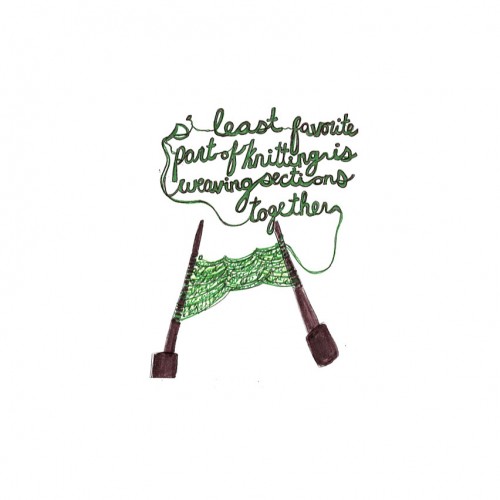 s' least favorite
part of knitting is
weaving sections
together